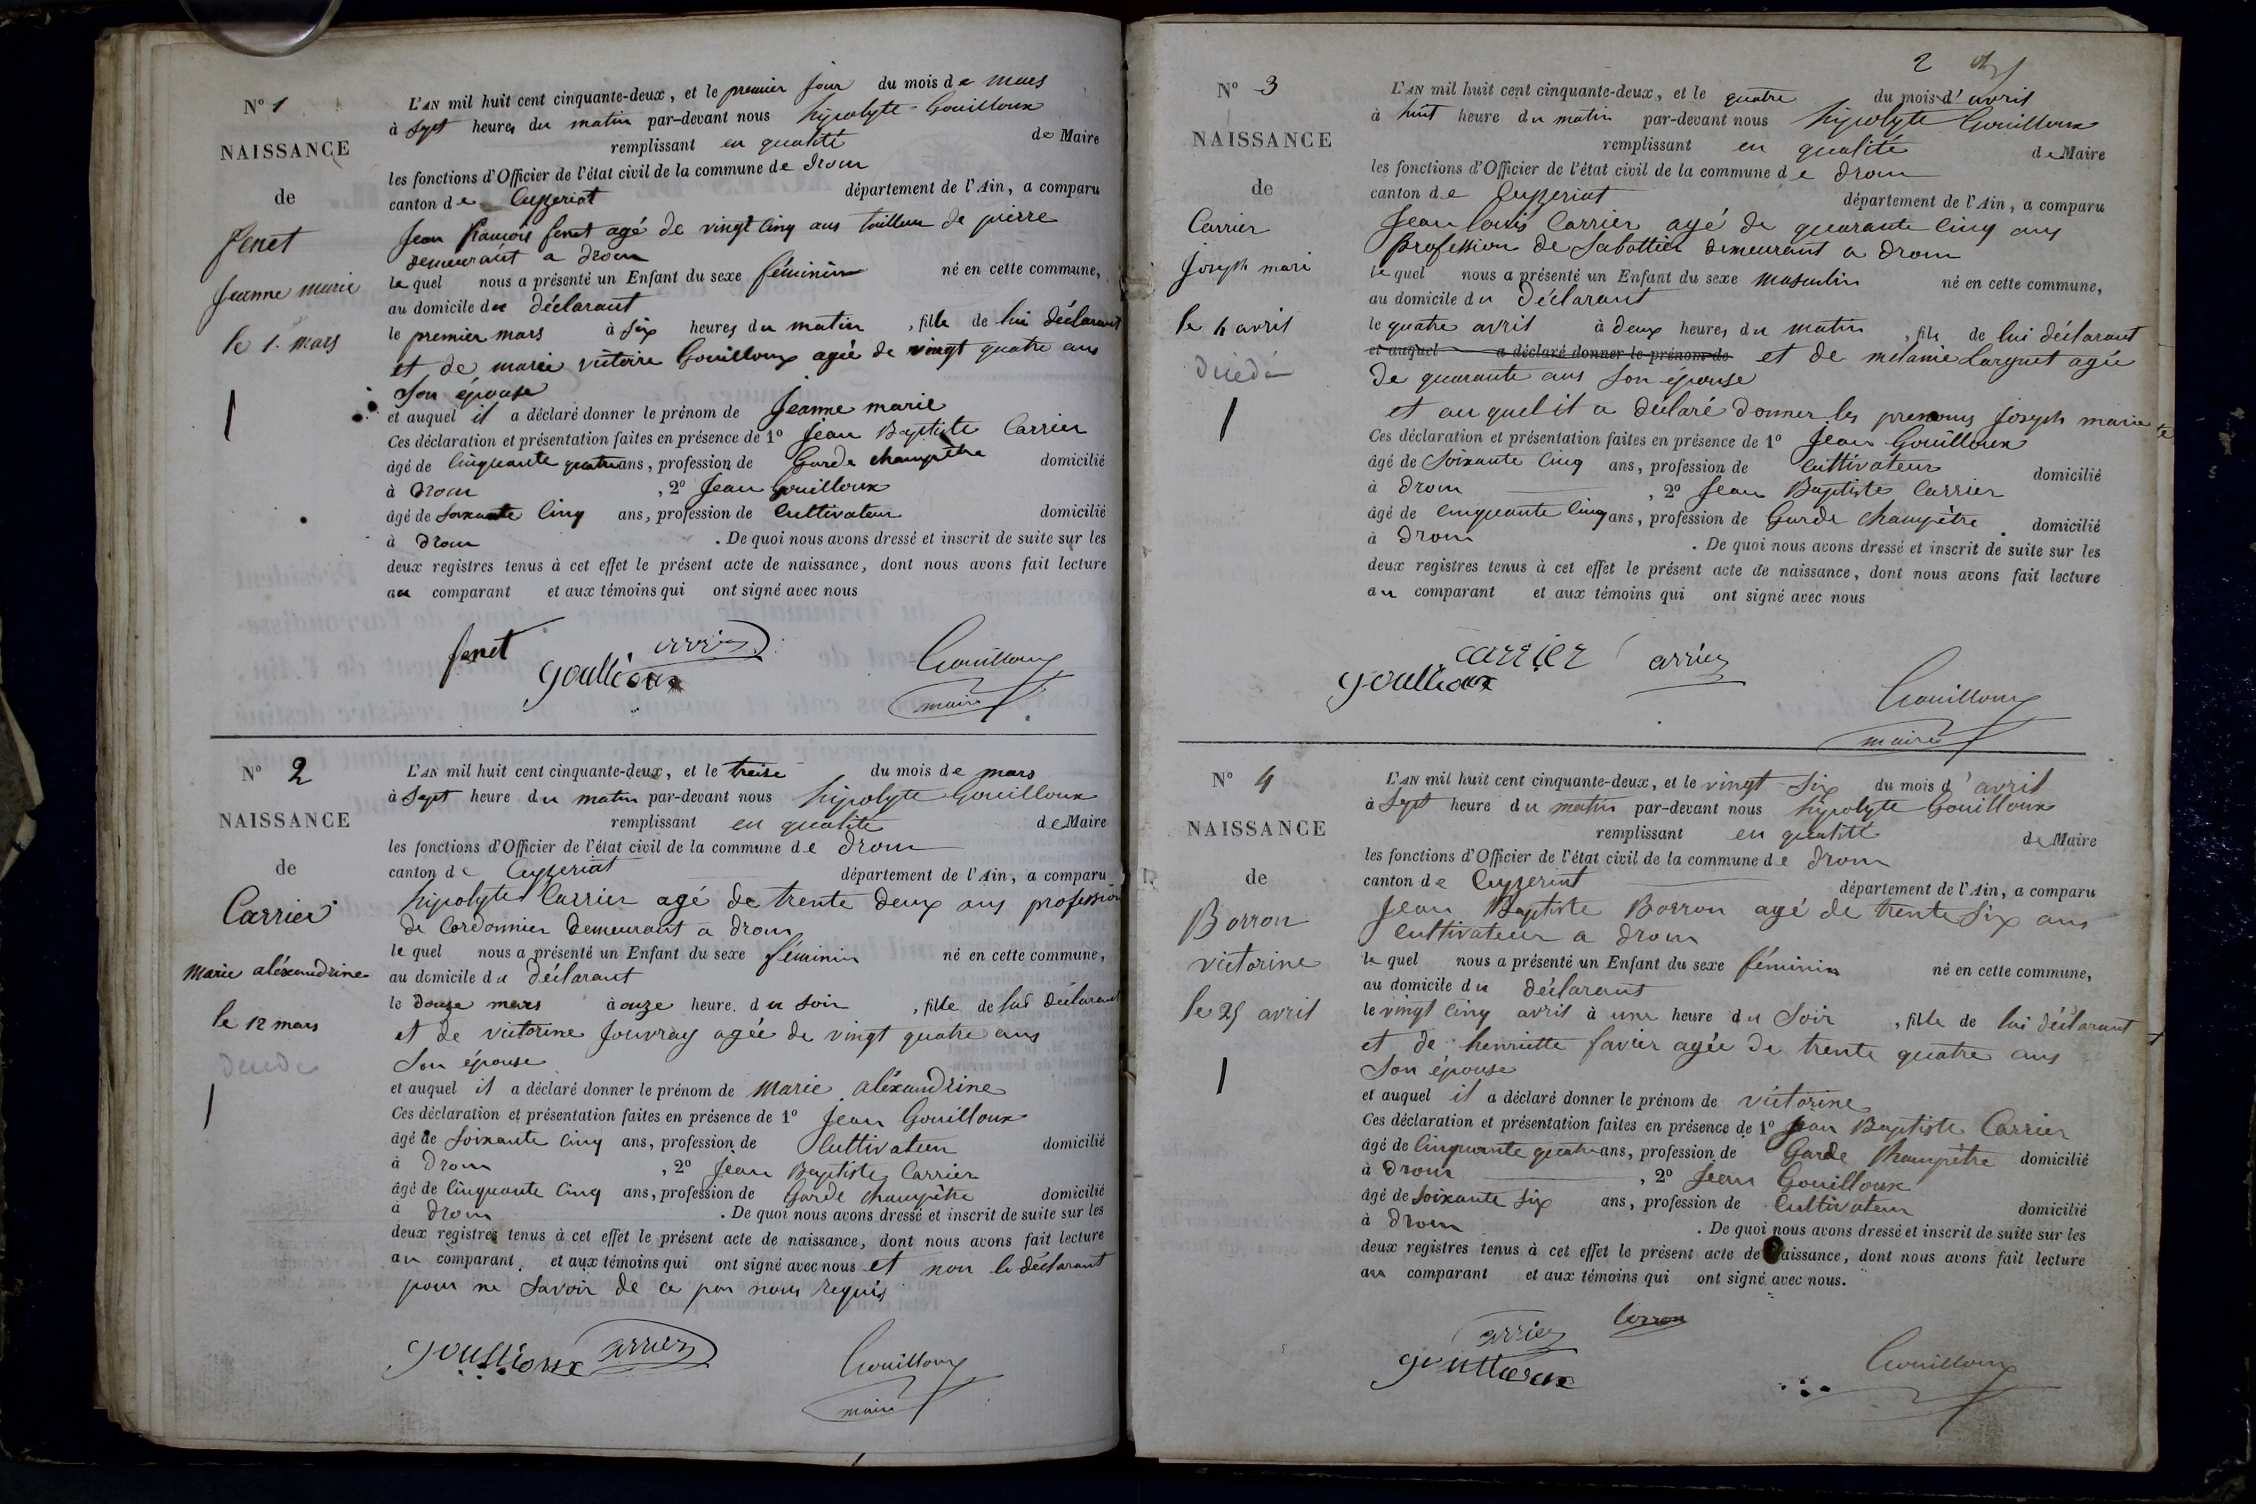 N° 1
NAISSANCE
de
fenet
Jeanne marie
le 1. mars
L'AN mil huit cent cinquante-deux, et le premier jour du mois de mars
à sept heures du matin par-devant nous hipolyte Gouilloux
remplissant en qualité de Maire
les fonctions d'Officier de l'état civil de la commune de drom
canton de Ceyzeriat département de l'Ain, a comparu
Jean françois fenet agé de vingt cinq ans tailleur de pierre
demeurant a drom
le quel nous a présenté un Enfant du sexe féminin né en cette commune,
au domicile du déclarant
le premier mars à six heures du matin, fille de lui déclarant
et de marie victoire Gouilloux agée de vingt quatre ans
son épouse
et auquel il a déclaré donner le prénom de Jeanne marie
Ces déclaration et présentation faites en présence de 1° Jean Baptiste Carrier
âgé de Cinquante quatre ans, profession de Garde champêtre domicilié
à drom, 2° Jean Gouilloux
âgé de soixante cinq ans, profession de Cultivateur domicilié
à drom. De quoi nous avons dressé et inscrit de suite sur les
deux registres tenus à cet effet le présent acte de naissance, dont nous avons fait lecture
au comparant et aux témoins qui ont signé avec nous
fenet arrier
goullioux Gouilloux
maire
N° 2
NAISSANCE
de
Carrier
marie aléxandrine
le 12 mars
L'AN mil huit cent cinquante-deux, et le treise du mois de mars
à sept heure du matin par-devant nous hipolyte Gouilloux
remplissant en qualité de Maire
les fonctions d'Officier de l'état civil de la commune de drom
canton de Ceyzeriat département de l'Ain, a comparu
hipolyte Carrier agé de trente deux ans profession
de Cordonnier demeurant a drom
le quel nous a présenté un Enfant du sexe féminin né en cette commune,
au domicile du déclarant
le douze mars à onze heure du soir, fille de lui déclarant
et de victorine Jouvray agée de vingt quatre ans
son épouse
et auquel il a déclaré donner le prénom de marie aléxandrine
Ces déclaration et présentation faites en présence de 1° Jean Gouilloux
âgé de soixante cinq ans, profession de Cultivateur domicilié
à drom, 2° Jean Baptiste Carrier
âgé de Cinquante cinq ans, profession de Garde champêtre domicilié
à drom. De quoi nous avons dressé et inscrit de suite sur les
deux registres tenus à cet effet le présent acte de naissance, dont nous avons fait lecture
au comparant et aux témoins qui ont signé avec nous et non le déclarant
pour ne savoir de ce par nous requis
goullioux arrier Gouilloux
maire
2
N° 3
NAISSANCE
de
Carrier
Joseph mari
le 4 avril
L'AN mil huit cent cinquante-deux, et le quatre du mois d'avril
à huit heure du matin par-devant nous hipolyte Gouilloux
remplissant en qualité de Maire
les fonctions d'Officier de l'état civil de la commune de drom
canton de Ceyzeriat département de l'Ain, a comparu
Jean louis Carrier agé de quarante cinq ans
profession de Sabottier demeurant a drom
le quel nous a présenté un Enfant du sexe masculin né en cette commune,
au domicile du déclarant
le quatre avril à deux heures du matin, fils de lui déclarant
et auquel a déclaré donner le prénom de et de mélanie Larguet agée
de quarante ans son épouse
et auquel il a déclaré donner les prenoms Joseph marie
Ces déclaration et présentation faites en présence de 1° Jean Gouilloux
âgé de soixante cinq ans, profession de Cultivateur domicilié
à drom, 2° Jean Baptiste Carrier
âgé de cinquante cinq ans, profession de Garde champêtre domicilié
à drom. De quoi nous avons dressé et inscrit de suite sur les
deux registres tenus à cet effet le présent acte de naissance, dont nous avons fait lecture
au comparant et aux témoins qui ont signé avec nous
carrier arrier
goullioux Gouilloux
maire
N° 4
NAISSANCE
de
Borron
victorine
le 25 avril
L'AN mil huit cent cinquante-deux, et le vingt six du mois d'avril
à sept heure du matin par-devant nous hipolyte Gouilloux
remplissant en qualité de Maire
les fonctions d'Officier de l'état civil de la commune de drom
canton de Ceyzeriat département de l'Ain, a comparu
Jean Baptiste Borron agé de trente six ans
Cultivateur a drom
le quel nous a présenté un Enfant du sexe féminin né en cette commune,
au domicile du déclarant
le vingt cinq avril à une heure du soir, fille de lui déclarant
et de henriette favier agée de trente quatre ans
son épouse
et auquel il a déclaré donner le prénom de victorine
Ces déclaration et présentation faites en présence de 1° Jean Baptiste Carrier
âgé de Cinquante quatre ans, profession de Garde Champêtre domicilié
à drom, 2° Jean Gouilloux
âgé de soixante six ans, profession de Cultivateur domicilié
à drom. De quoi nous avons dressé et inscrit de suite sur les
deux registres tenus à cet effet le présent acte de naissance, dont nous avons fait lecture
au comparant et aux témoins qui ont signé avec nous.
arrier borron
goullioux Gouilloux